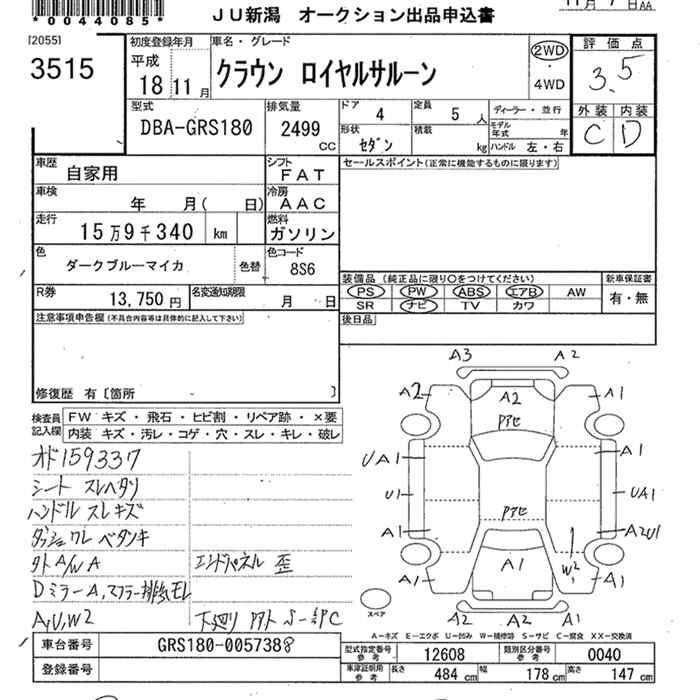 *0044085*
JU新潟 オークション出品申込書
11月 7日AA
[2055]
3515
初度登録年月
平成
18 11 月
車名・グレード
クラウン ロイヤルサルーン
2WD
・
4WD
評価点
3.5
外装 内装
C D
型式
DBA-GRS180
排気量
2499
CC
ドア
4
定員
5 人
形状
セダン
積載
kg
ディーラー・並行
モデル
年式 年
ハンドル 左・右
車歴
自家用
シフト
FAT
セールスポイント(正常に機能するものに限ります)
車検
年 月( 日)
冷房
AAC
走行
15万9千340 km
燃料
ガソリン
色
ダークブルーマイカ
色替
色コード
8S6
装備品(純正品に限り○をつけてください)
新車保証書
PS PW ABS エアB AW
有・無
SR ナビ TV カワ
R券
13,750 円
名変通知期限
月 日
後日品
注意事項申告欄(不具合内容等は具体的に記入して下さい)
修復歴 有〔箇所 〕
検査員
記入欄
FW キズ・飛石・ヒビ割・リペア跡・×要
内装 キズ・汚レ・コゲ・穴・スレ・キレ・破レ
オド159337
シート スレヘタリ
ハンドル スレキズ
ダッシュワレ ベタツキ
外A/W A
エンドパネル 歪
Dミラー A,マフラー排気モレ
A,U,W2
下廻り
A3 A2
A2 A2 A1
UA1 A1
U1 UA1
A1 A2U1
A1 A1 W2 A1
A2 A2 A1
スペア
A-キズ E-エクボ U-凹み W-補修跡 S-サビ C-腐食 XX-交換済
車台番号
GRS180-0057388
登録番号
型式指定番号
参考
12608
類別区分番号
参考
0040
車庫証明用
参考
長さ 484 cm 幅 178 cm 高さ 147 cm